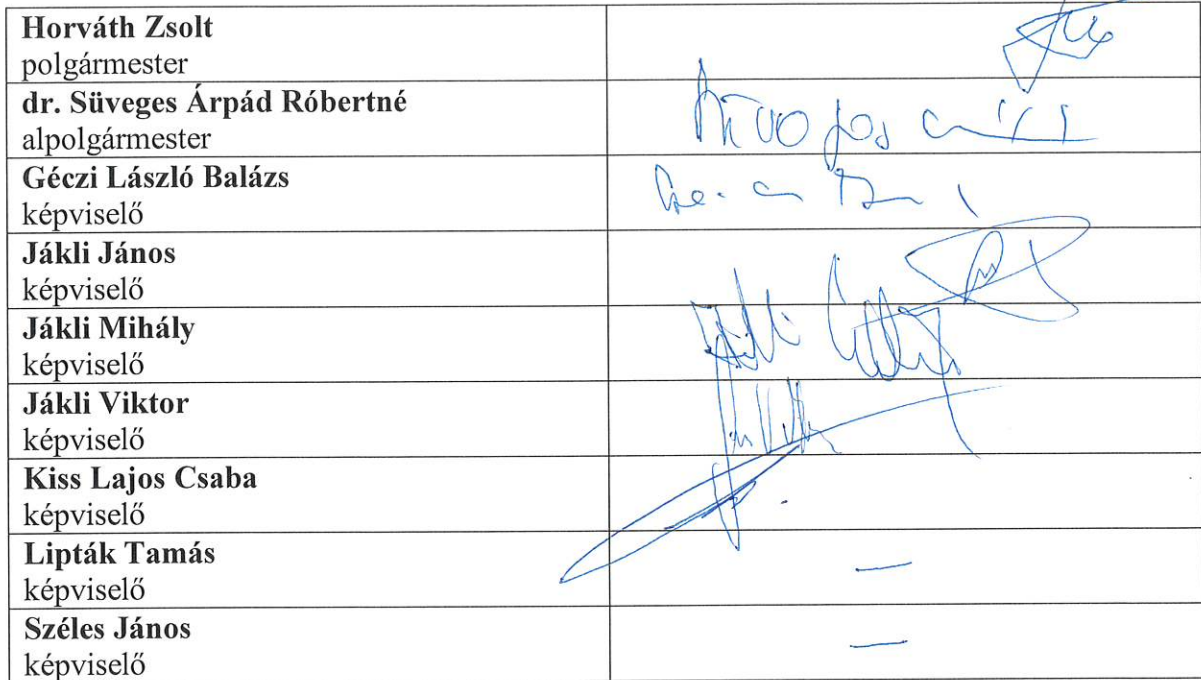 Horváth Zsolt
polgármester
dr. Süveges Árpád Róbertné
alpolgármester
Géczi László Balázs
képviselő
Jákli János
képviselő
Jákli Mihály
képviselő
Jákli Viktor
képviselő
Kiss Lajos Csaba
képviselő
Lipták Tamás
képviselő
–
Széles János
képviselő
–